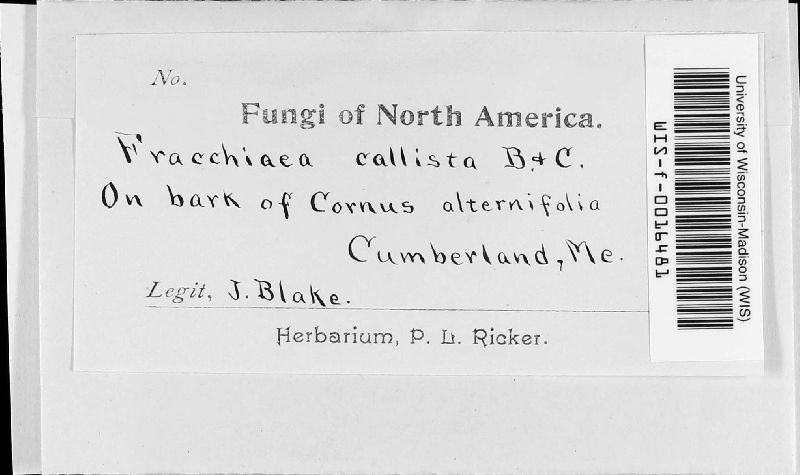 No.
Fungi of North America.
Fracchiaea callista B.&C.
On bark of Cornus alternifolia
Cumberland, Me.
Legit, J. Blake.
Herbarium, P. L. Ricker.
University of Wisconsin-Madison (WIS)
WIS-f-0016481